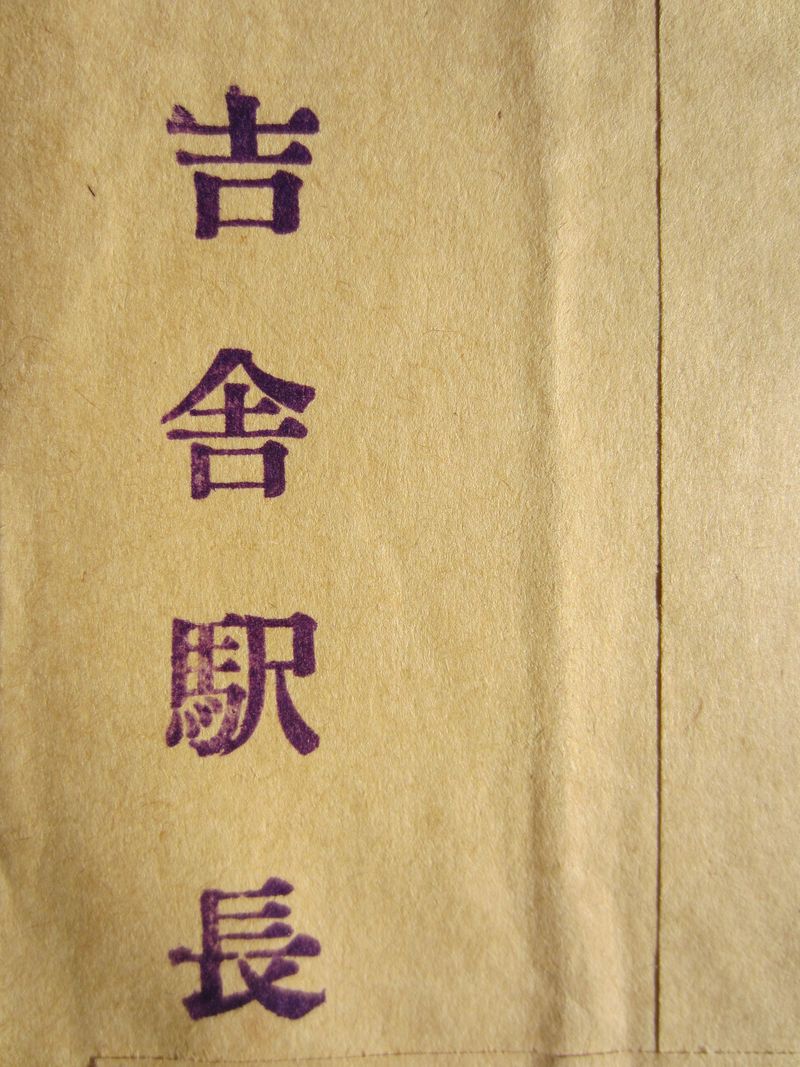 吉舎駅長